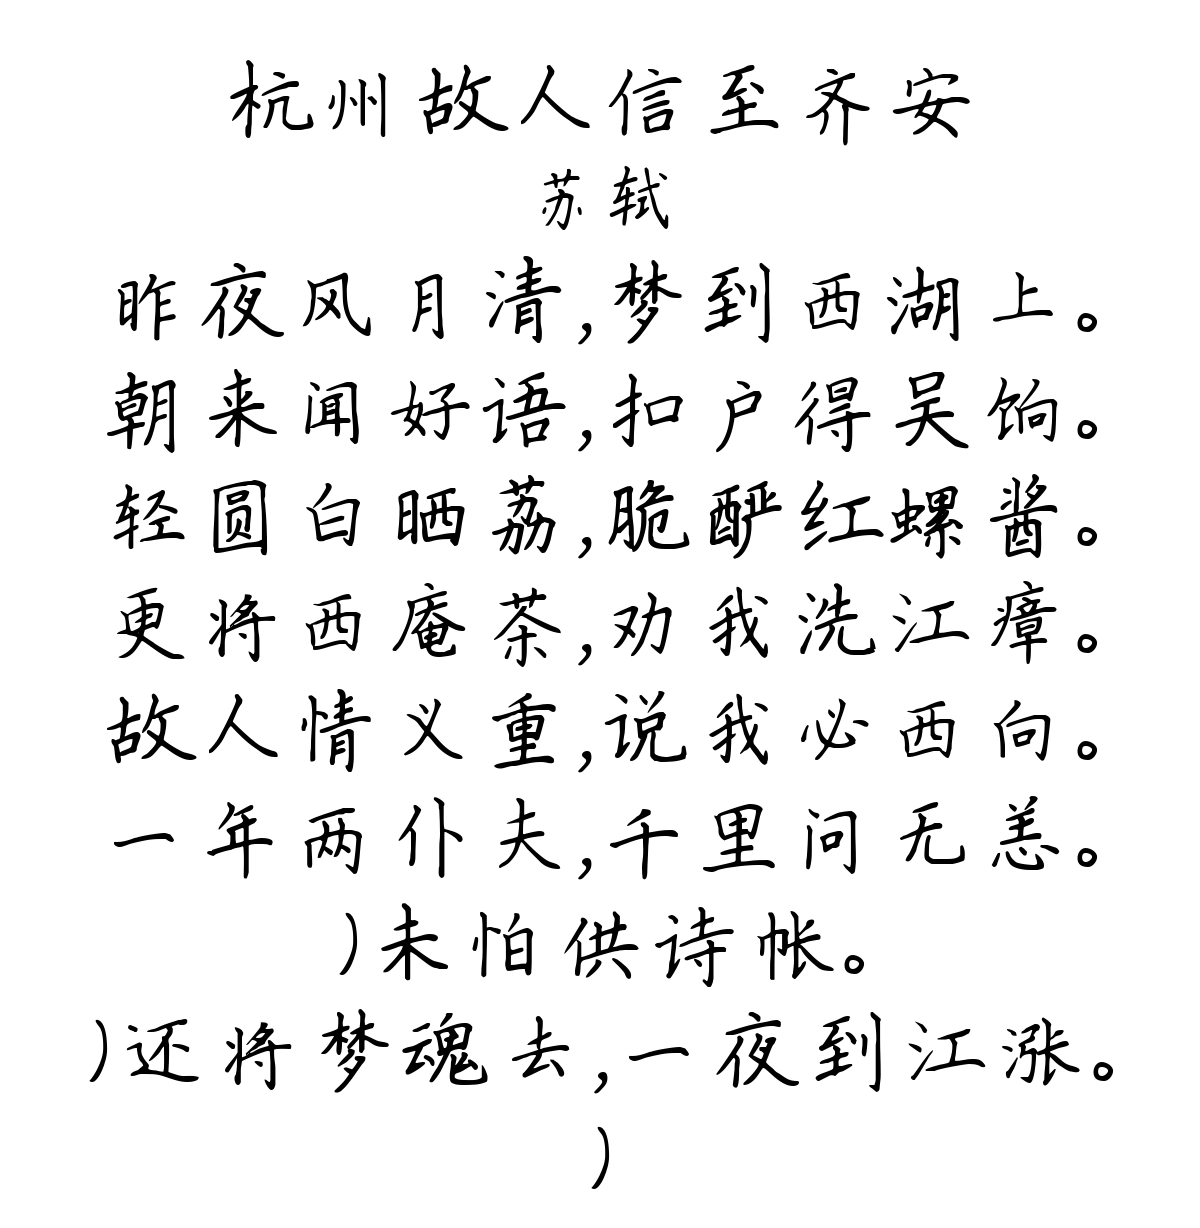 杭州故人信至齐安
苏轼
昨夜风月清,梦到西湖上。
朝来闻好语,扣户得吴饷。
轻圆白晒荔,脆酽红螺酱。
更将西庵茶,劝我洗江瘴。
故人情义重,说我必西向。
一年两仆夫,千里问无恙。
)未怕供诗帐。
)还将梦魂去,一夜到江涨。
)